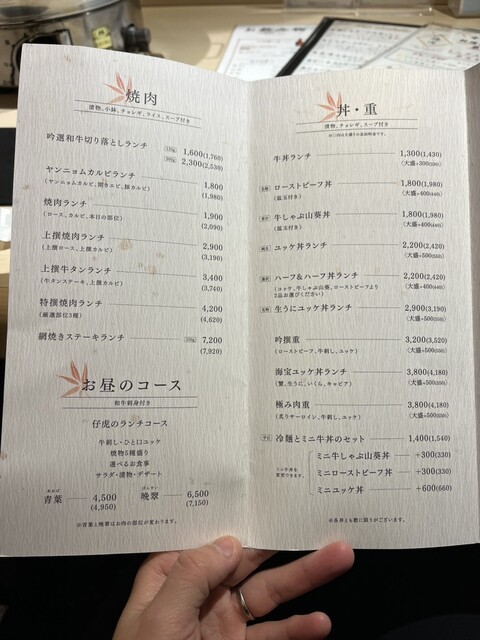 焼肉
漬物、小鉢、チョレギ、ライス、スープ付き
吟選和牛切り落としランチ 1,600(1,760)
2,300(2,530)
ヤンニョムカルビランチ 1,800
(ヤンニョムカルビ、開きエビ、豚カルビ) (1,980)
焼肉ランチ 1,900
(ロース、カルビ、本日の部位) (2,090)
上撰焼肉ランチ 2,900
(上撰ロース、上撰カルビ) (3,190)
上撰牛タンランチ 3,400
(牛タンステーキ、上撰カルビ) (3,740)
特撰焼肉ランチ 4,200
(厳選部位3種) (4,620)
網焼きステーキランチ 7,200
(7,920)
お昼のコース
和牛刺身付き
仔虎のランチコース
牛刺し・ひと口ユッケ
焼物5種盛り
選べるお食事
サラダ・漬物・デザート
青葉 4,500
(4,950)
晩翠 6,500
(7,150)
※青葉と晩翠はお肉の部位が変わります。
丼・重
漬物、チョレギ、スープ付き
牛丼ランチ 1,300(1,430)
ローストビーフ丼 1,800(1,980)
(温玉付き)
牛しゃぶ山葵丼 1,800(1,980)
(温玉付き)
ユッケ丼ランチ 2,200(2,420)
ハーフ&ハーフ丼ランチ 2,200(2,420)
(ユッケ、牛しゃぶ山葵、ローストビーフより
2品お選びください)
生うにユッケ丼ランチ 2,900(3,190)
吟撰重 3,200(3,520)
(ローストビーフ、牛刺し、ユッケ)
海宝ユッケ丼ランチ 3,800(4,180)
(蟹、生うに、いくら、キャビア)
極み肉重 3,800(4,180)
(炙りサーロイン、牛刺し、ユッケ)
冷麺とミニ牛丼のセット 1,400(1,540)
ミニ牛丼を
変更できます。
ミニ牛しゃぶ山葵丼 +300(330)
ミニローストビーフ丼 +300(330)
ミニユッケ丼 +600(660)
※各丼とも数に限りがございます。